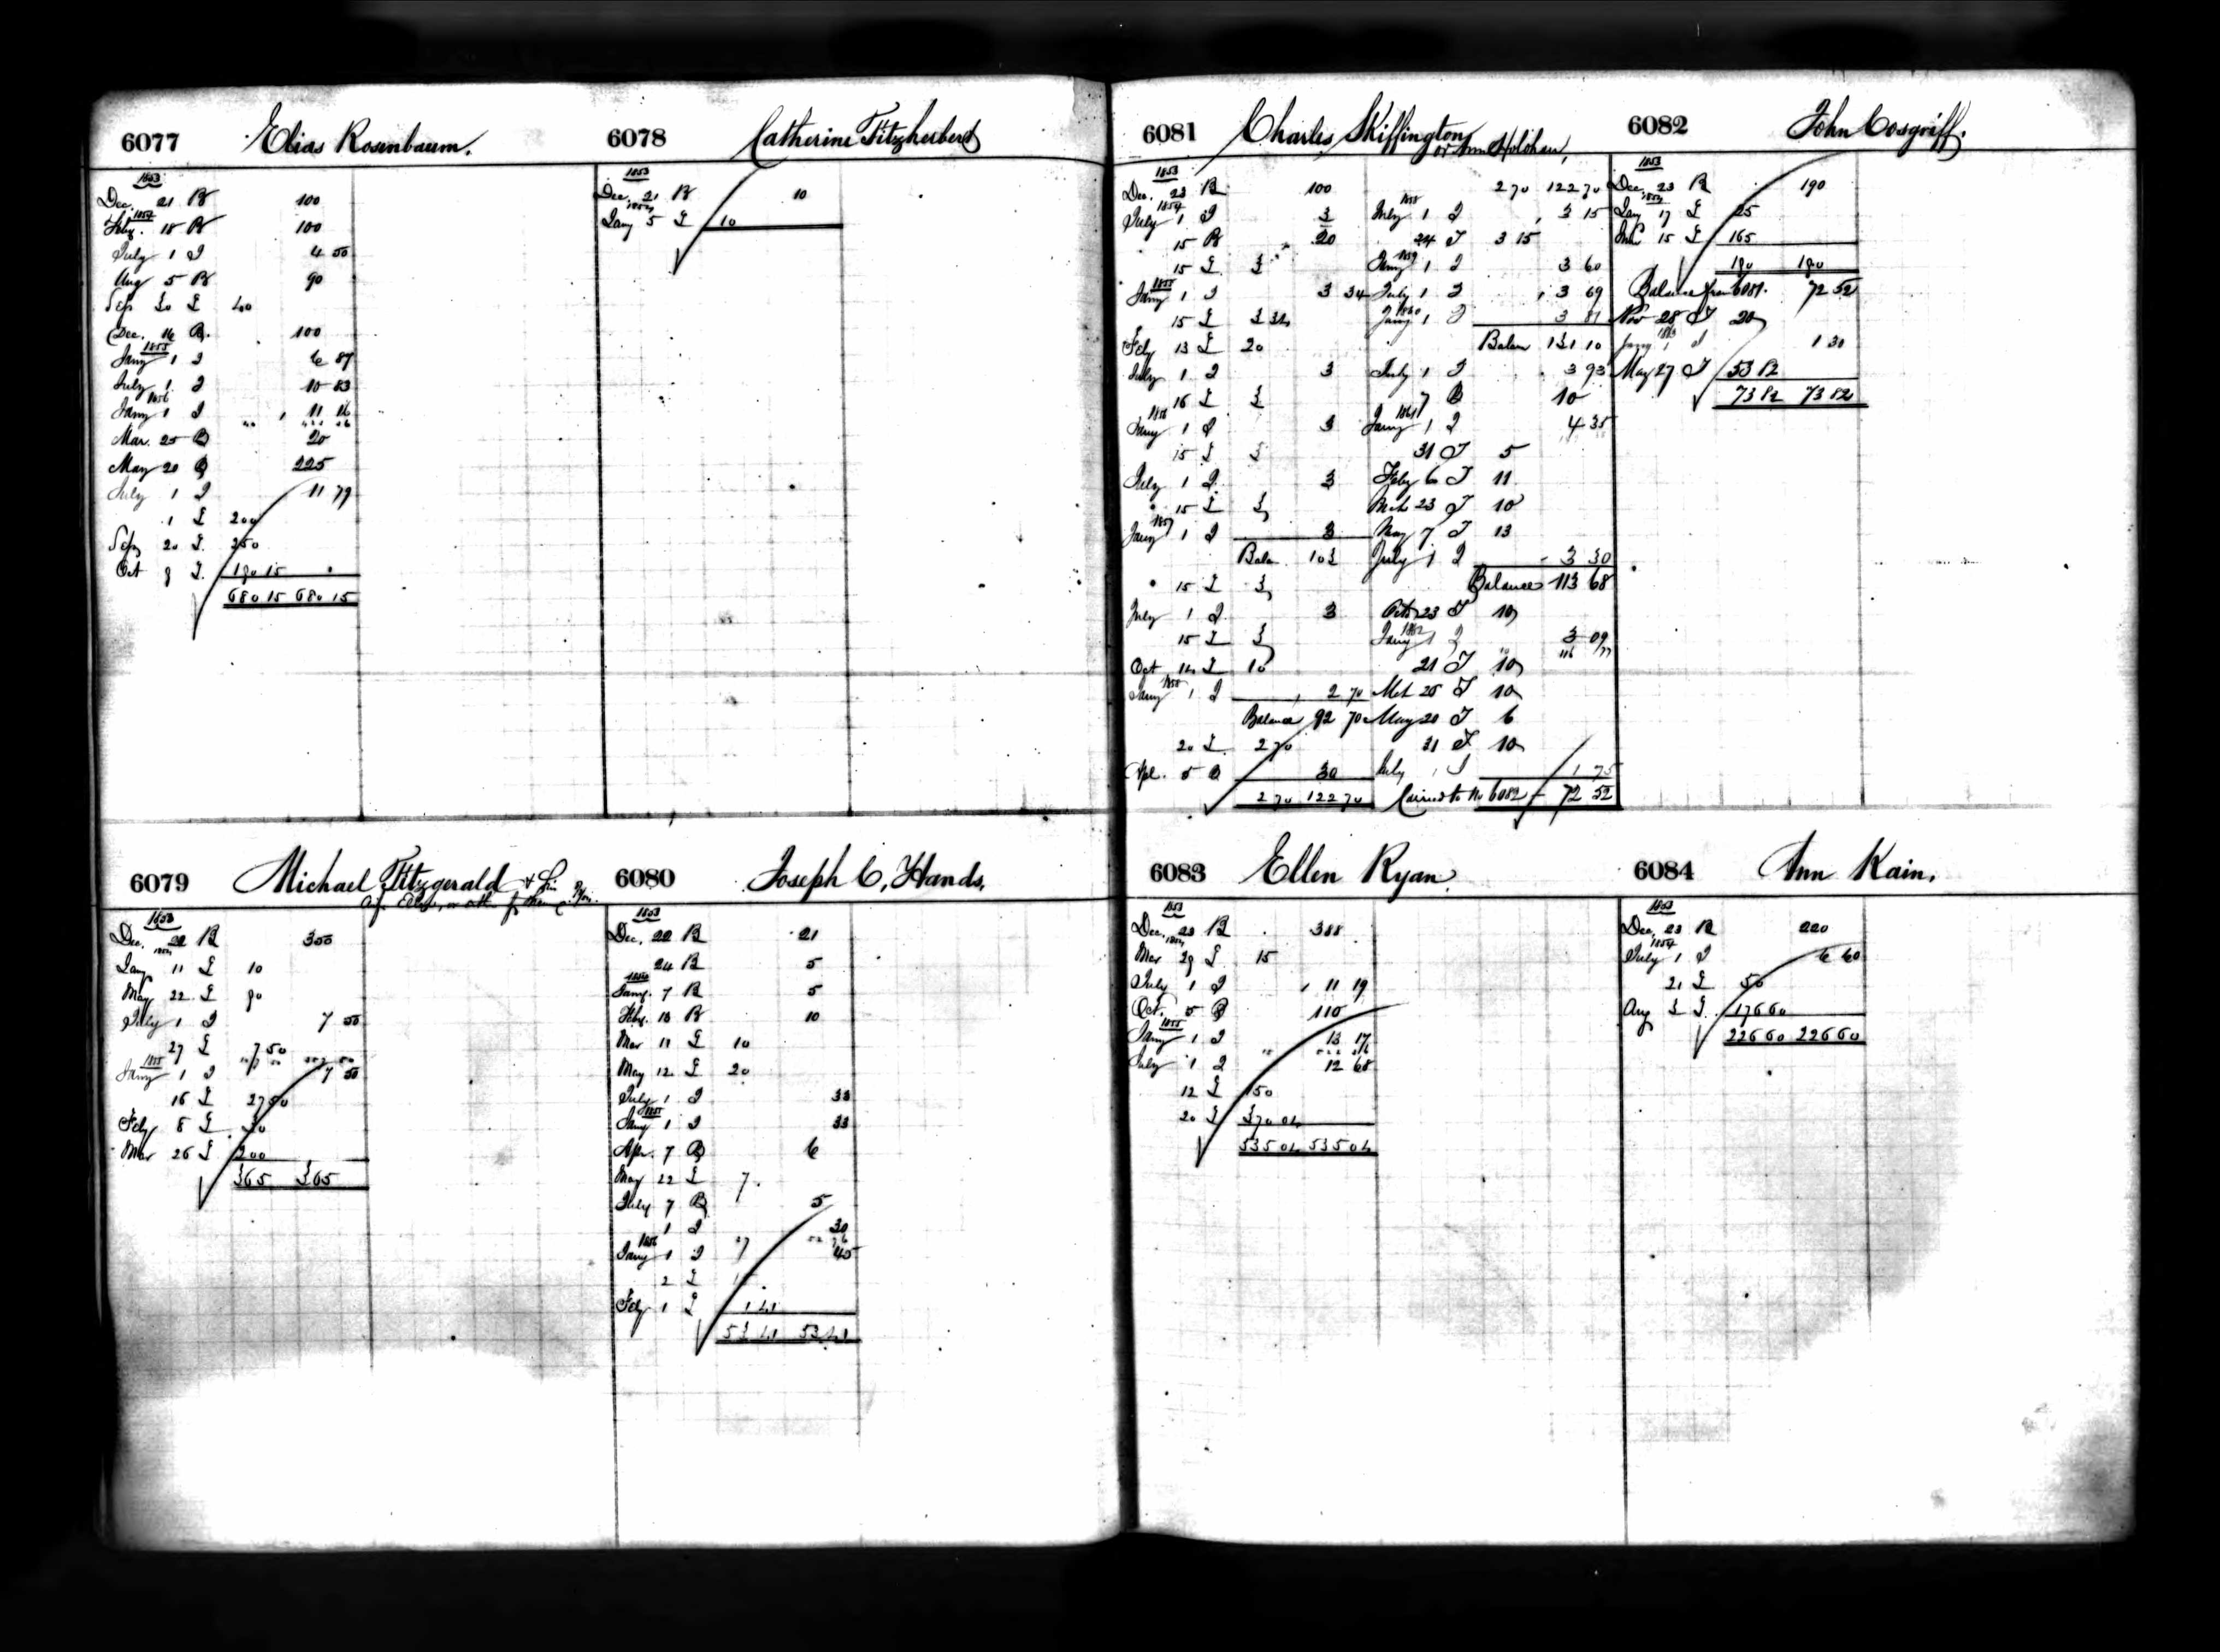 6077 Elias Rosenbaum.
1853
Dec. 21 B 100
1854
Feby. 18 B 100
July 1 I 4 50
Aug 5 B 90
Sep 20 L 40
Dec. 16 B 100
1855
Jany 1 I 6 87
July 1 I 10 83
1856
Jany 1 I 11 16
Mar. 25 B 20
May 20 B 225
July 1 I 11 79
1 L 200
Sep 20 L 250
Oct 9 L 190 15
680 15 680 15
6078 Catherine Fitzherbert
1853
Dec. 21 B 10
1854
Jany 5 L 10
6079 Michael Fitzgerald & his
1853
Dec. 22 B 300
1854
Jany 11 L 10
May 22 L 90
July 1 I 7 50
27 L 7 50
1855
Jany 1 I 7 50
16 L 27 50
Feby 8 L 30
Mar 26 L 200
365 365
6080 Joseph C. Hands.
1853
Dec. 22 B 21
24 B 5
Jany. 7 B 5
Feby. 13 B 10
Mar 11 L 10
May 12 L 20
July 1 I 33
1855
Jany 1 I 33
Apr. 7 B 6
May 22 L 7
July 7 B 5
1 I 30
1856
Jany 1 I 45
2 L
Feby 1 L 1 41
53 41 53 41
6081 Charles Skiffington
or Ann Holohan,
1853
Dec. 23 B 100
1854
July 1 I 3
15 B 20
15 L 3
1855
Jany 1 I 3 34
15 L 3 34
Feby 13 L 20
July 1 I 3
16 L 3
1856
Jany 1 I 3
15 L 3
July 1 I 3
15 L 3
1857
Jany 1 I 3
Balan 103
15 L 3
July 1 I 3
15 L 3
Oct 14 L 10
1858
Jany 1 I 2 70
Balance 92 70
20 L 2 70
Apl. 5 B 30
2 70 122 70
2 70 122 70
1858
July 1 I 3 15
24 T 3 15
1859
Jany 1 I 3 60
July 1 I 3 69
1860
Jany 1 I 3 81
Balan 131 10
July 1 I 3 93
7 B 10
1861
Jany 1 I 4 35
31 T 5
Feby 6 T 11
Mch 23 T 10
May 7 T 13
July 1 I 3 30
Balance 113 68
Oct 23 T 10
1862
Jany 1 I 3 09
21 T 10
Mch 25 T 10
May 20 T 6
31 T 10
July 1 I 1 75
Carried to No 6082 72 52
6082 John Cosgriff.
1853
Dec. 23 B 190
1854
Jany 17 L 25
15 L 165
190 190
Balance from 6081. 72 52
Nov 28 T 20
1863
Jany 1 I 1 30
May 27 T 53 82
73 82 73 82
6083 Ellen Ryan.
1853
Dec. 23 B 388
1854
Mar 29 L 15
July 1 I 11 19
Oct. 5 B 110
1855
Jany 1 I 13 17
July 1 I 12 68
12 L 150
20 L 370 04
535 04 535 04
6084 Ann Kain.
1853
Dec. 23 B 220
1854
July 1 I 6 60
21 L 50
Aug 3 L 176 60
226 60 226 60